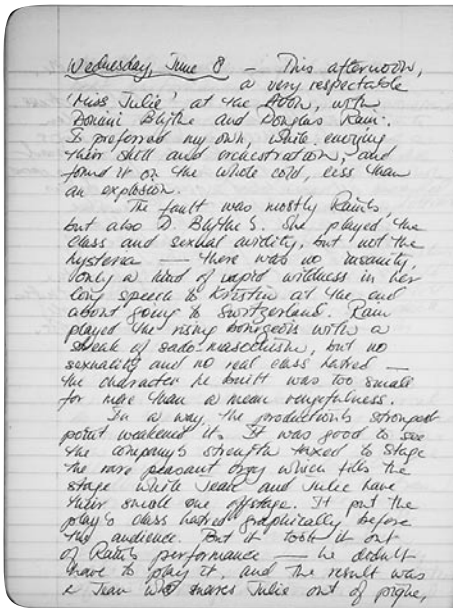 Wednesday, June 8 – This afternoon,
a very respectable
'Miss Julie' at the Avon, with
Domini Blythe and Douglas Rain.
I preferred my own, while envying
their skill and orchestration, and
found it on the whole cold, less than
an explosion.
The fault was mostly Rain's,
but also D. Blythe's. She played the
class and sexual avidity, but not the
hysteria — there was no insanity,
only a kind of vapid wildness in her
long speech to Kristin at the end
about going to Switzerland. Rain
played the rising bourgeois with a
streak of sado-masochism, but no
sexuality and no real class hatred —
the character he built was too small
for more than a mean vengefulness.
In a way, the production's strongest
point weakened it. It was good to see
the company's strength taxed to stage
the rare peasant orgy which fills the
stage while Jean and Julie have
their small one offstage. It put the
play's class hatred graphically before
the audience. But it took it out
of Rain's performance — he didn't
have to play it, and the result was
a Jean who snares Julie out of pique,